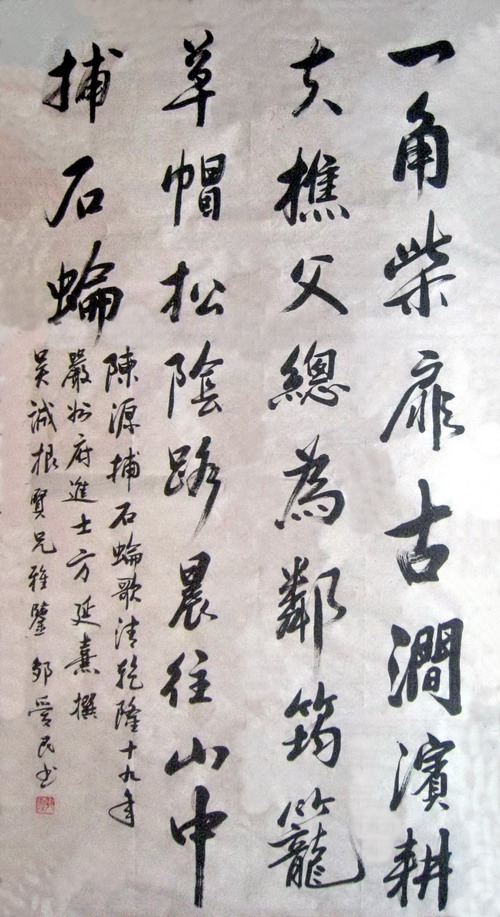 一角柴扉古澗濱耕
夫樵父總為鄰筠籠
草帽松陰路晨往山中
捕石蜦
陳源捕石蜦歌清乾隆十九年
嚴州府進士方延熹撰
吴誠根賢兄雅鑒鄒愛民书